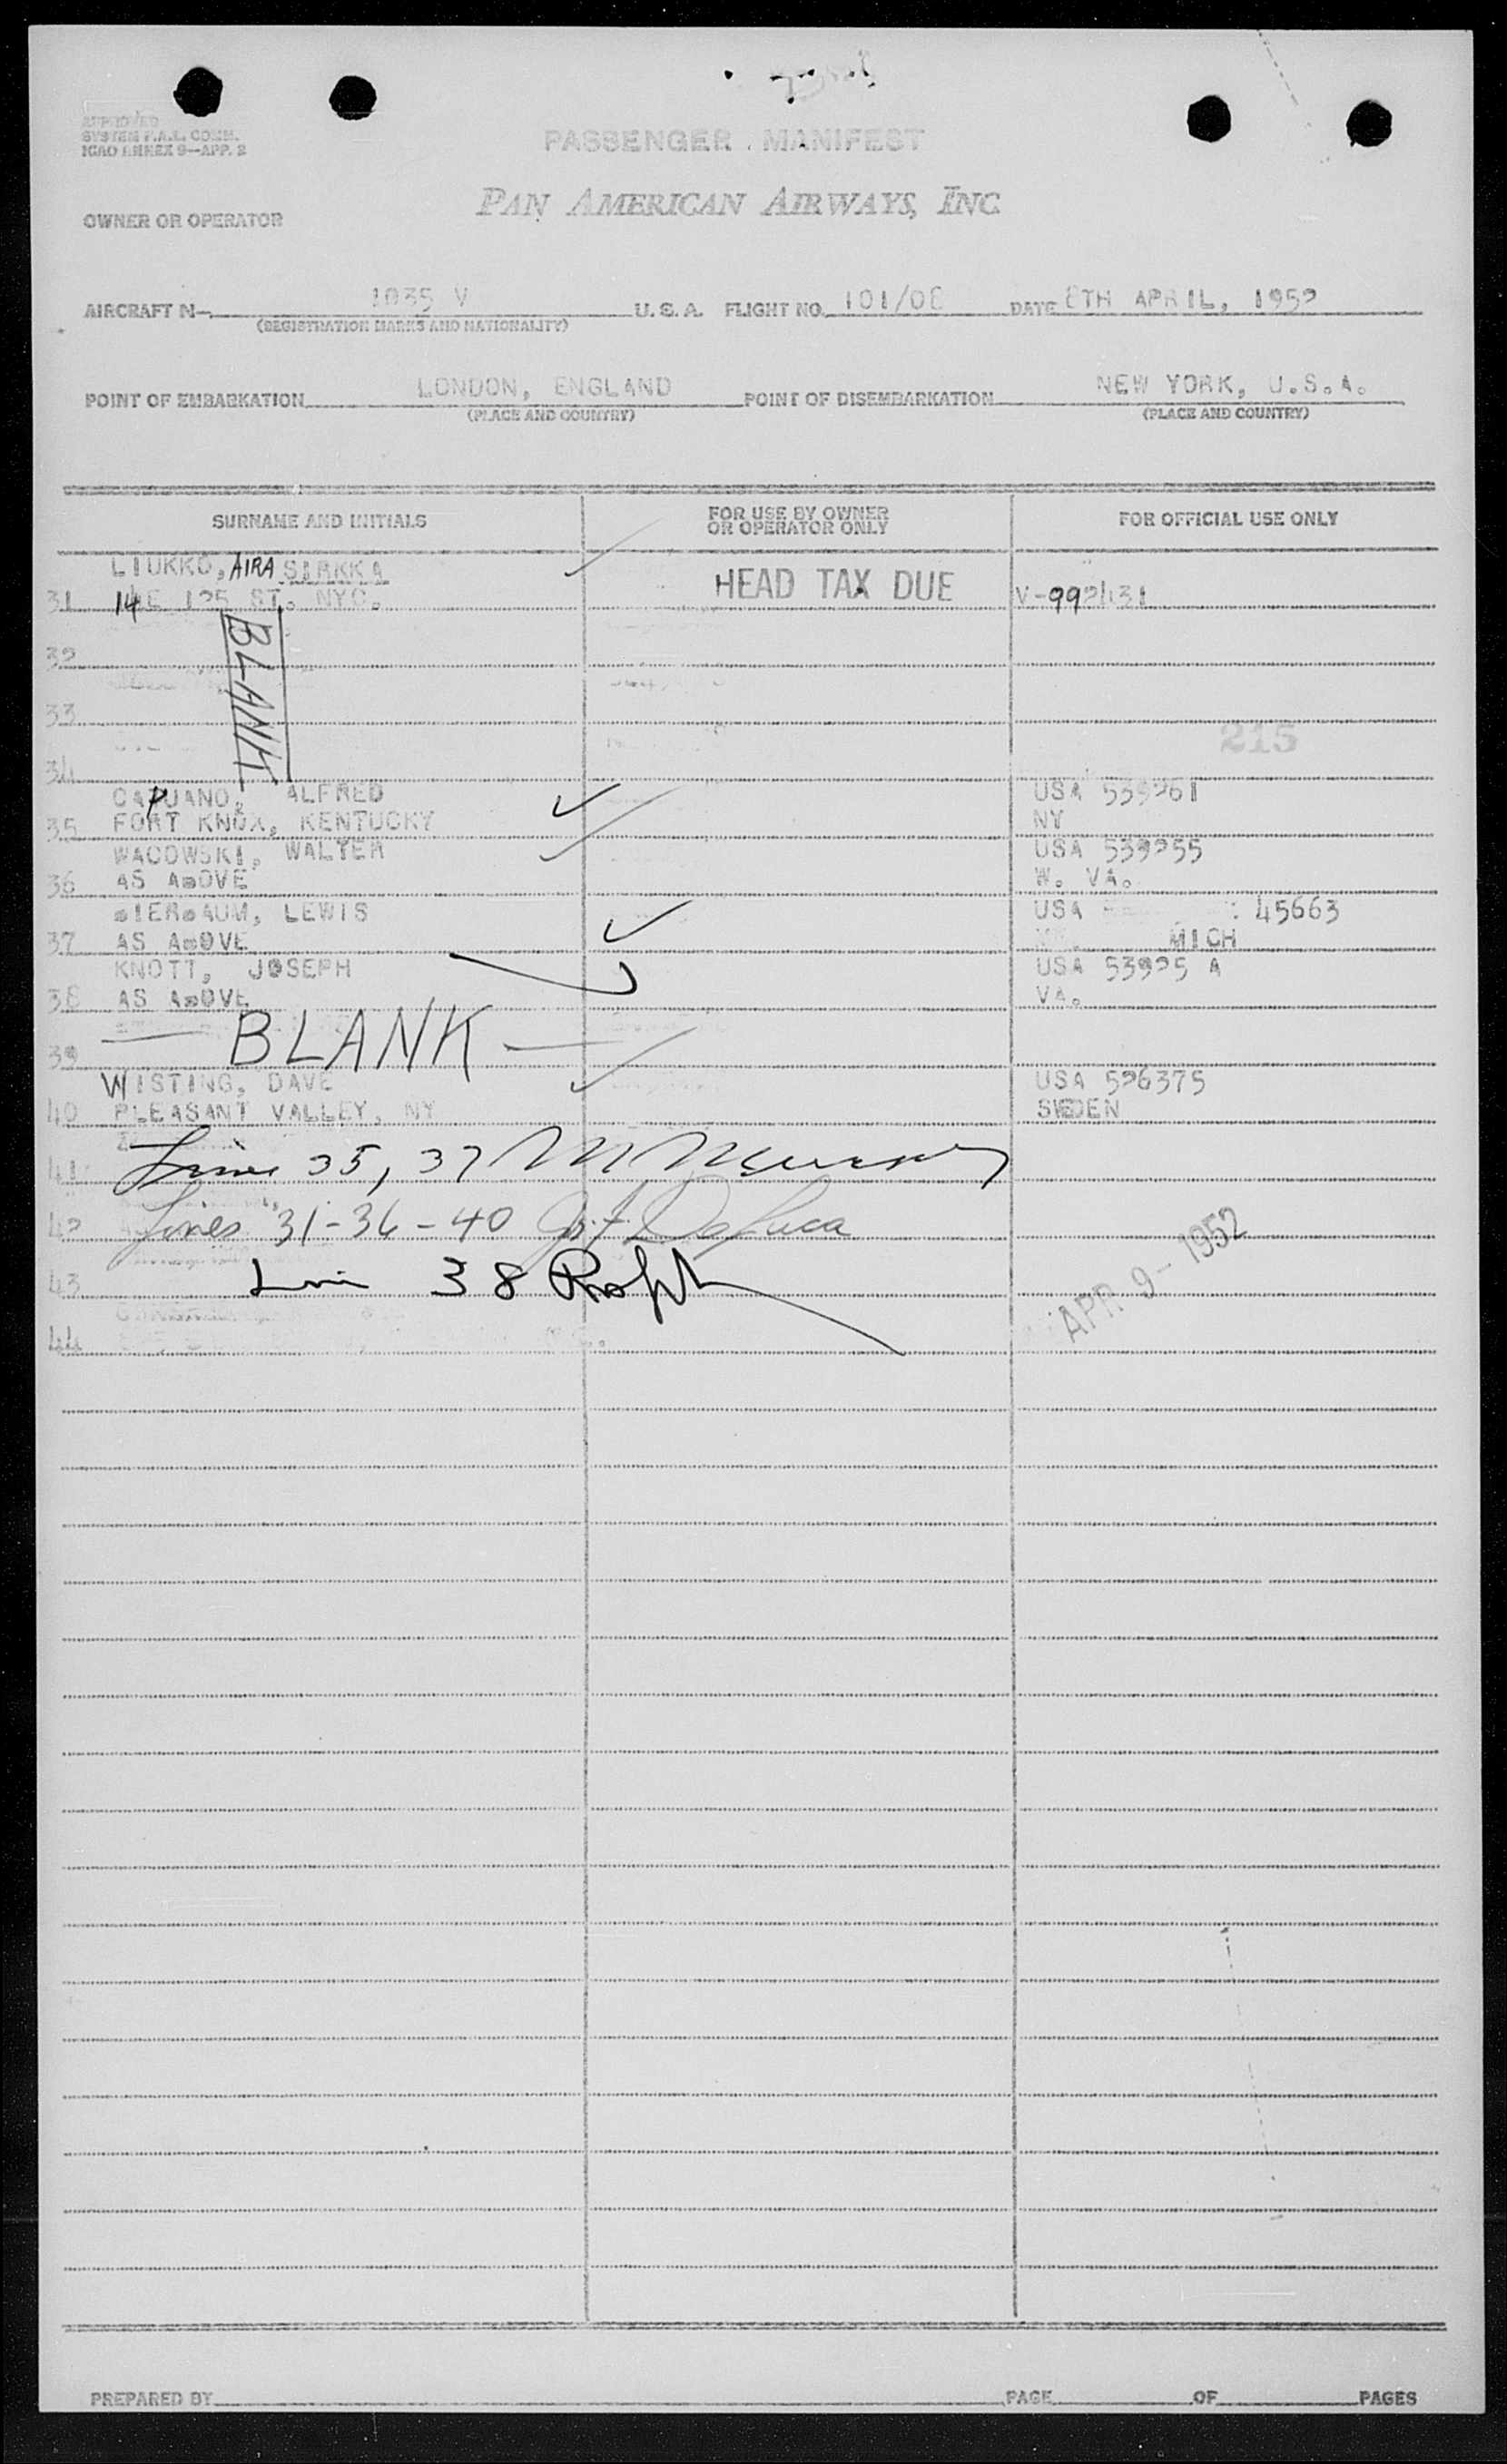 APPROVED
SYSTEM F.A.L. COMM.
ICAO ANNEX 9—APP. 2
PASSENGER MANIFEST
PAN AMERICAN AIRWAYS, INC.
OWNER OR OPERATOR
AIRCRAFT N- 1035 V U. S. A. FLIGHT NO. 101/08 DATE 8TH APRIL, 1952
(REGISTRATION MARKS AND NATIONALITY)
POINT OF EMBARKATION LONDON, ENGLAND POINT OF DISEMBARKATION NEW YORK, U.S.A.
(PLACE AND COUNTRY) (PLACE AND COUNTRY)
SURNAME AND INITIALS FOR USE BY OWNER OR OPERATOR ONLY FOR OFFICIAL USE ONLY
LIUKKO, AIRA SIRKKA
31 14 E 125 ST. NYC. HEAD TAX DUE V-992431
32
BLANK
33
215
34
CAPUANO, ALFRED USA 539261
35 FORT KNOX, KENTUCKY NY
WACOWSKI, WALTER USA 539255
36 AS ABOVE W. VA.
BIERBAUM, LEWIS USA 45663
37 AS ABOVE MICH
KNOTT, JOSEPH USA 53925 A
38 AS ABOVE VA.
39 — BLANK —
WISTING, DAVE USA 526375
40 PLEASANT VALLEY, NY SWEDEN
41 Lines 35, 37
42 Lines 31-36-40 DeLuca
APR 9 - 1952
43 Line 38
44
PREPARED BY PAGE OF PAGES